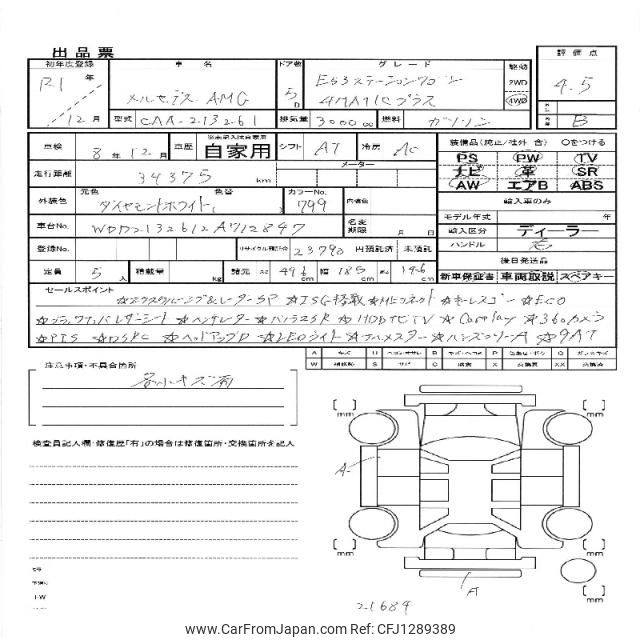 出品票
初年度登録 車名 ドア数 グレード 駆動 評価点
R1年 メルセデス AMG 5D E53ステーションワゴン 2WD 4.5
12月 4MATICプラス 4WD
型式 CAA-213261 排気量 3000 cc 燃料 ガソリン 内装 B
車検 8年12月 車歴 自家用 シフト AT 冷房 AC 装備品(純正/社外 含) ○をつける
PS PW TV
走行距離 34375 km メーター ナビ 革 SR
AW エアB ABS
外装色 元色 ダイヤモンドホワイト 色替 カラーNo. 799 内装色 輸入車のみ
モデル年式 年
車台No. WDD2132612A712847 名変期限 月 日 輸入区分 ディーラー
登録No. リサイクル預託金 23790 円預託済 未預託 ハンドル 右
後日発送品
定員 5人 積載量 kg 諸元 長さ 496cm 幅 185cm 高 146cm 新車保証書 車両取説 スペアキー
セールスポイント
☆ISG搭載 ☆MEコネクト ☆キーレスゴー ☆ECO
☆パノラマSR ☆HDDナビTV ☆Carplay ☆360カメラ
☆PTS ☆DSRC ☆ヘッドアップD ☆LEDライト ☆ブルメスター ☆ハンズフリーA ☆9AT
注意事項・不具合箇所
若小キズ有
検査員記入欄・修復歴「有」の場合は修復箇所・交換箇所を記入
A キズ U ヘコミ B キズ・ヘコミ
W S サビ C 腐食 X XX
mm mm
A
mm mm
A
21684
www.CarFromJapan.com Ref: CFJ1289389